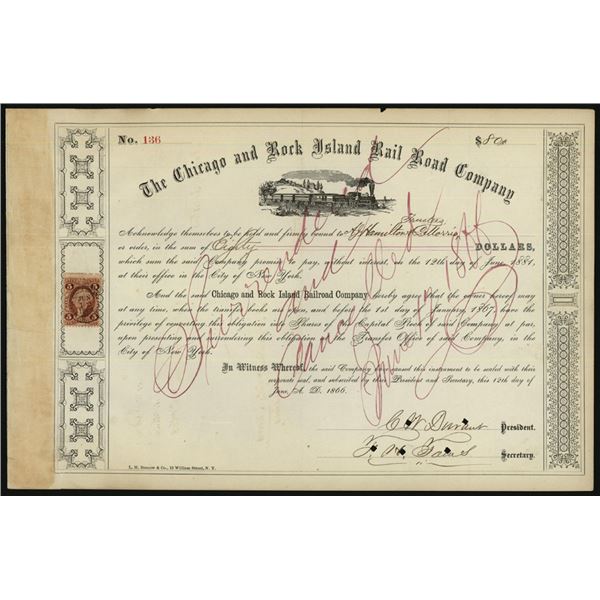 No. 136
$80 00
The Chicago and Rock Island Rail Road Company
Trustees
Acknowledge themselves to be held and firmly bound to Hamilton & Morris
or order, in the sum of Eighty DOLLARS,
which sum the said Company promise to pay, without interest, on the 12th day of June 1881,
at their office in the City of New York.
And the said Chicago and Rock Island Railroad Company hereby agree that the owner hereof may at any
time, while the transfer books are open, and before the 1st day of January 1867, have the
privilege of converting this obligation in Shares of the Capital Stock of said Company at par,
upon presenting and surrendering this obligation at the Transfer Office of said Company, in the
City of New York.
In Witness Whereof, the said Company have caused this instrument to be sealed with their
corporate seal, and subscribed by their President and Secretary, this 12th day of
June A. D. 1866.
C W Durant President.
F. H. Tows Secretary.
Surrendered
and
Cancelled
1866
5 5
L. H. Bigelow & Co., 13 William Street, N. Y.